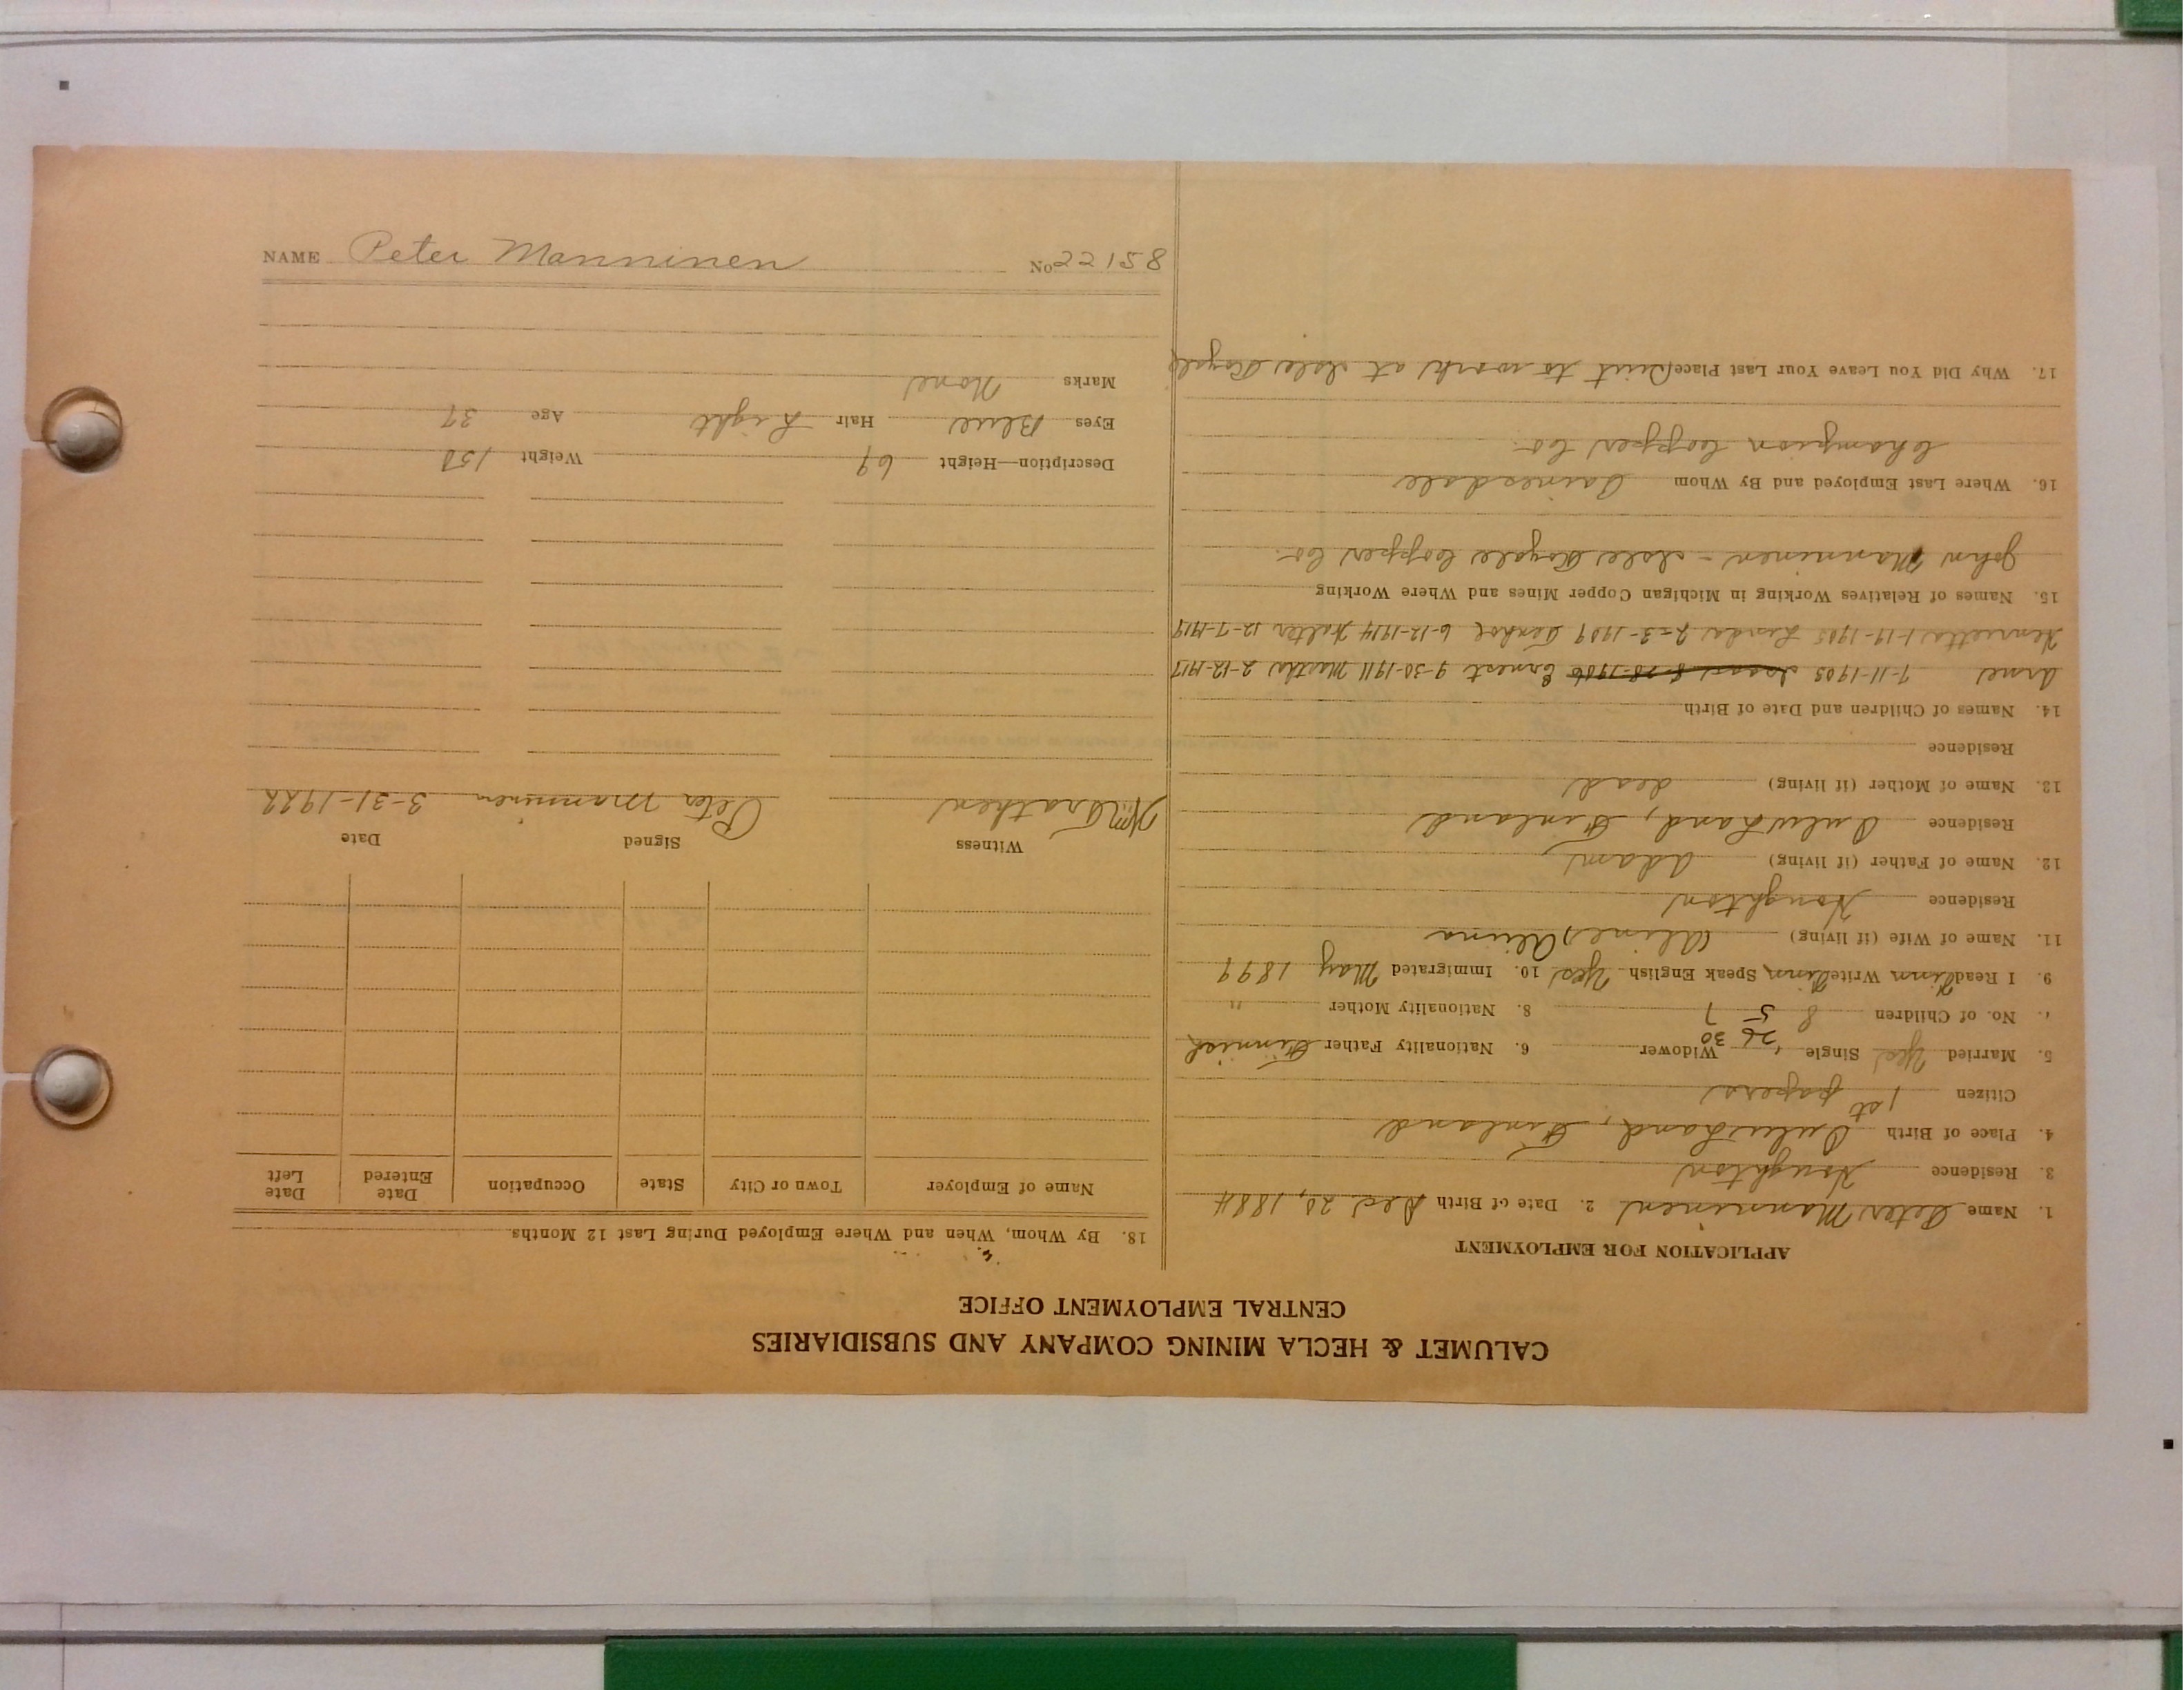 NAME Peter Manninen No 22158
CALUMET & HECLA MINING COMPANY AND SUBSIDIARIES
CENTRAL EMPLOYMENT OFFICE
APPLICATION FOR EMPLOYMENT
1. Name Peter Manninen 2. Date of Birth Dec 20, 1884
3. Residence Houghton
4. Place of Birth Oulu Land, Finland
Citizen 1st papers
5. Married Yes Single Widower 6. Nationality Father Finnish
26 30
No. of Children 8 5 7 8. Nationality Mother "
9. I Read Finn Write Finn Speak English Yes 10. Immigrated May 1899
11. Name of Wife (if living) Aline Alina
Residence Houghton
12. Name of Father (if living) Adam
Residence Oulu Land, Finland
13. Name of Mother (if living) dead
Residence
14. Names of Children and Date of Birth
Arne 7-11-1903 Isaac 8-28-1906 Ernest 9-30-1911 Martha 2-12-1917
Henrietta 1-19-1905 Linda 2-3-1909 6-12-1914 Walter 12-7-1919
15. Names of Relatives Working in Michigan Copper Mines and Where Working
John Manninen - Isle Royale Copper Co.
16. Where Last Employed and By Whom Painesdale
Champion Copper Co.
17. Why Did You Leave Your Last Place Quit to work at Isle Royale
18. By Whom, When and Where Employed During Last 12 Months
Name of Employer Town or City State Occupation Date Entered Date Left
Witness Signed Date
Peter Manninen 3-31-1922
Description—Height 69 Weight 150
Eyes Blue Hair Light Age 37
Marks None